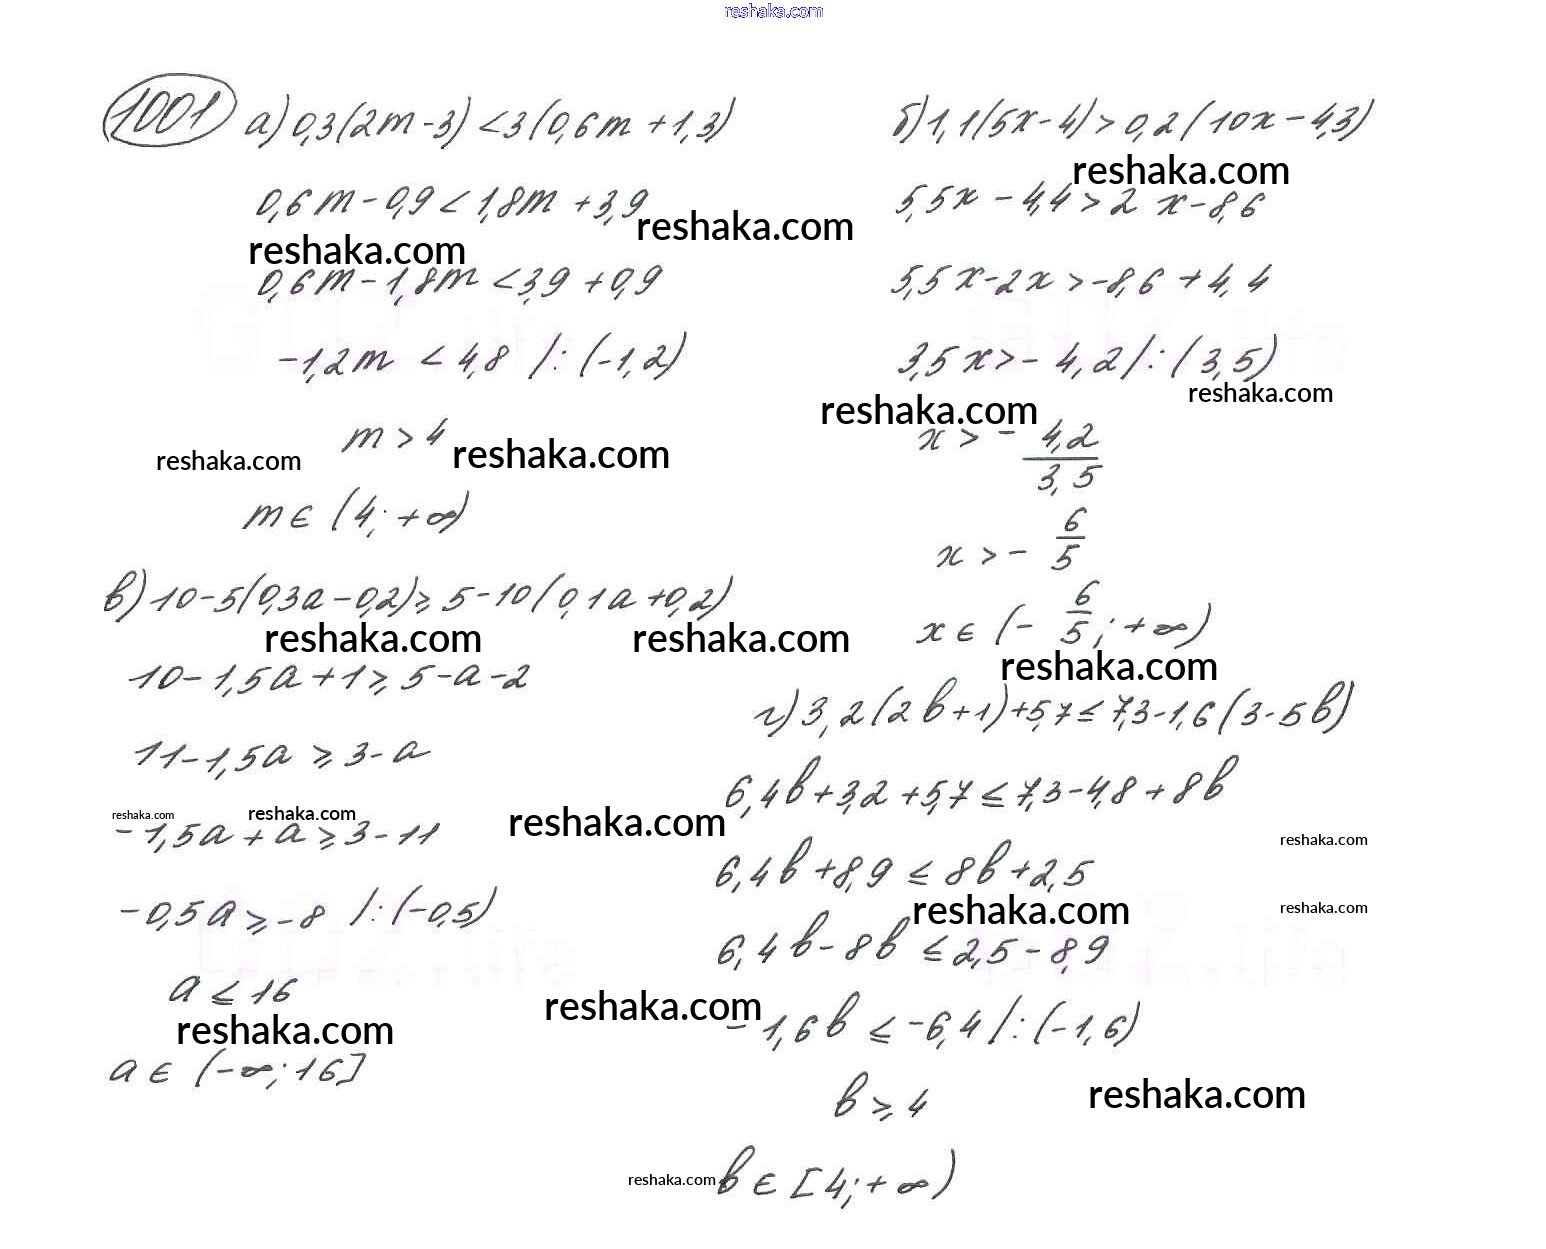 reshaka.com
1001 а) 0,3(2m-3) < 3(0,6m + 1,3)
0,6m - 0,9 < 1,8m + 3,9
reshaka.com
reshaka.com
0,6m - 1,8m < 3,9 + 0,9
-1,2m < 4,8 /:(-1,2)
m > 4
reshaka.com
reshaka.com
m ∈ (4; +∞)
б) 1,1(5x-4) > 0,2(10x - 4,3)
reshaka.com
5,5x - 4,4 > 2x - 8,6
5,5x - 2x > -8,6 + 4,4
3,5x > -4,2 /:(3,5)
reshaka.com
reshaka.com
x > - 4,2/3,5
x > - 6/5
x ∈ (- 6/5; +∞)
reshaka.com
в) 10 - 5(0,3a - 0,2) ≥ 5 - 10(0,1a + 0,2)
reshaka.com
reshaka.com
10 - 1,5a + 1 ≥ 5 - a - 2
11 - 1,5a ≥ 3 - a
reshaka.com
reshaka.com
-1,5a + a ≥ 3 - 11
-0,5a ≥ -8 /:(-0,5)
a ≤ 16
reshaka.com
a ∈ (-∞; 16]
г) 3,2(2b+1) + 5,7 ≤ 7,3 - 1,6(3-5b)
6,4b + 3,2 + 5,7 ≤ 7,3 - 4,8 + 8b
reshaka.com
reshaka.com
6,4b + 8,9 ≤ 8b + 2,5
reshaka.com
reshaka.com
6,4b - 8b ≤ 2,5 - 8,9
reshaka.com
-1,6b ≤ -6,4 /:(-1,6)
reshaka.com
b ≥ 4
reshaka.com
b ∈ [4; +∞)